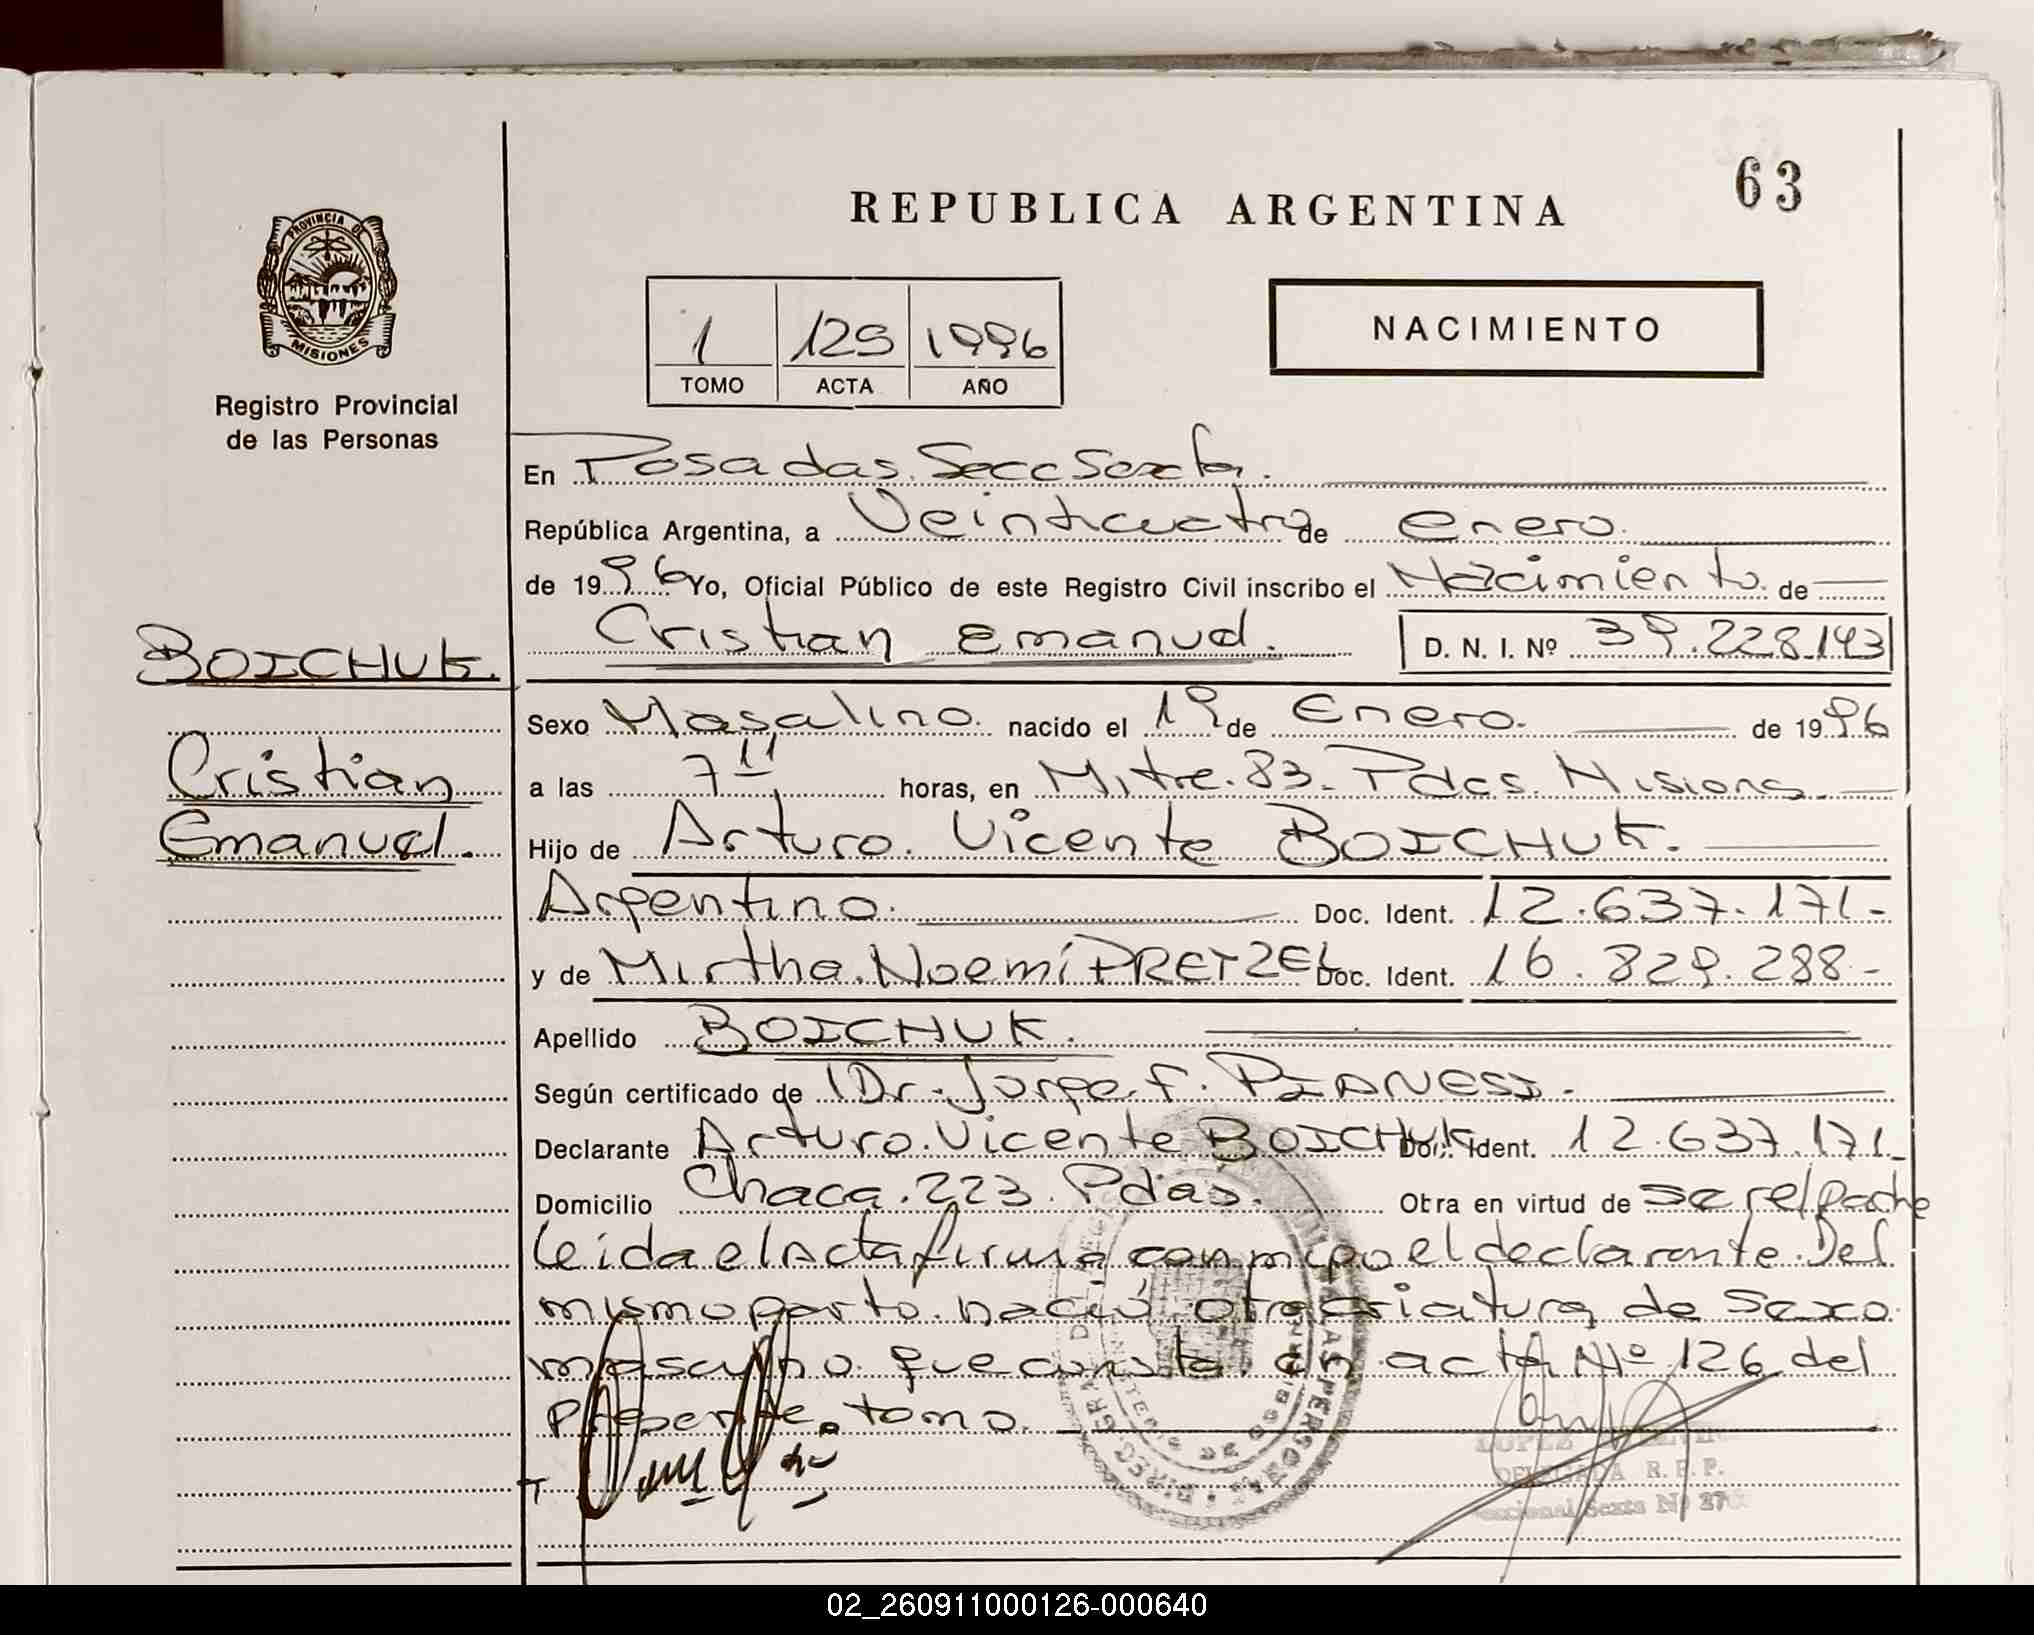 63
REPUBLICA ARGENTINA
PROVINCIA DE
MISIONES
Registro Provincial
de las Personas
1 125 1996
TOMO ACTA AÑO
NACIMIENTO
En Posadas. Secc Sexta.
República Argentina, a Veinticuatro de enero.
de 1996 Yo, Oficial Público de este Registro Civil inscribo el Nacimiento. de
Cristian Emanuel. D. N. I. Nº 39.228.143
BOICHUK.
Cristian
Emanuel.
Sexo Masculino. nacido el 19 de Enero. de 1996
a las 7 11 horas, en Mitre. 83. Pdas. Misiones.
Hijo de Arturo. Vicente BOICHUK.
Argentino. Doc. Ident. 12.637.171-
y de Mirtha. Noemí PRETZEL Doc. Ident. 16.829.288-
Apellido BOICHUK.
Según certificado de Dr. Jorge. F. PIANESI.
Declarante Arturo. Vicente BOICHUK Doc. Ident. 12.637.171-
Domicilio Chaca. 223. Pdas. Otra en virtud de ser el padre
leida el Acta firma conmigo el declarante. Del
mismo parto. nació otra criatura de Sexo
masculino. que consta en acta Nº 126 del
presente. tomo.
LOPEZ
DELEGADA R. P. P.
Seccional Sexta Nº 270
02_260911000126-000640